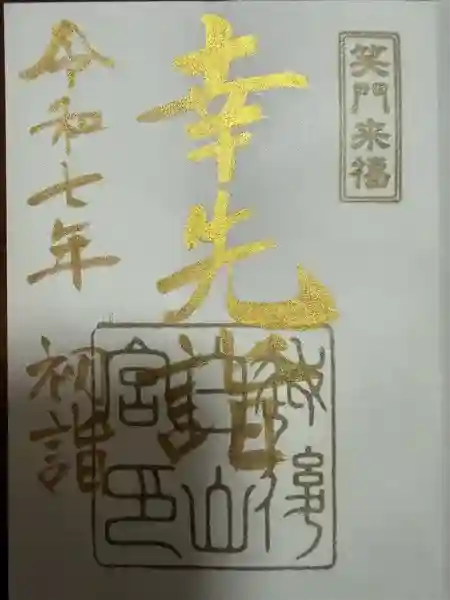 笑門来福
幸先詣
令和七年 初詣
宮印